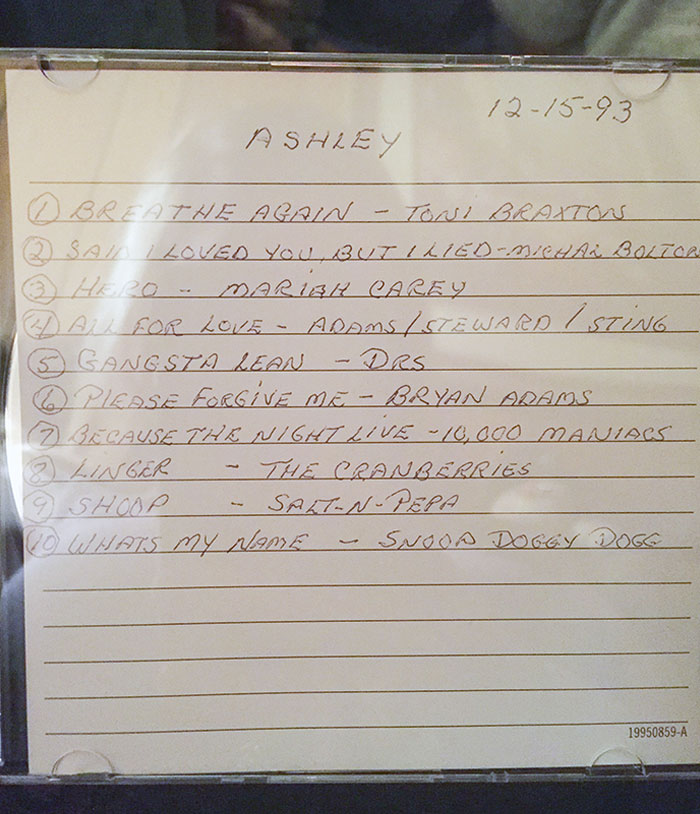 12-15-93
ASHLEY
① BREATHE AGAIN - TONI BRAXTON
② SAID I LOVED YOU, BUT I LIED-MICHAL BOLTON
③ HERO - MARIAH CAREY
④ ALL FOR LOVE - ADAMS/STEWARD/STING
⑤ GANGSTA LEAN - DRS
⑥ PLEASE FORGIVE ME - BRYAN ADAMS
⑦ BECAUSE THE NIGHT LIVE -10,000 MANIACS
⑧ LINGER - THE CRANBERRIES
⑨ SHOOP - SALT-N-PEPA
⑩ WHATS MY NAME - SNOOP DOGGY DOGG
19950859-A